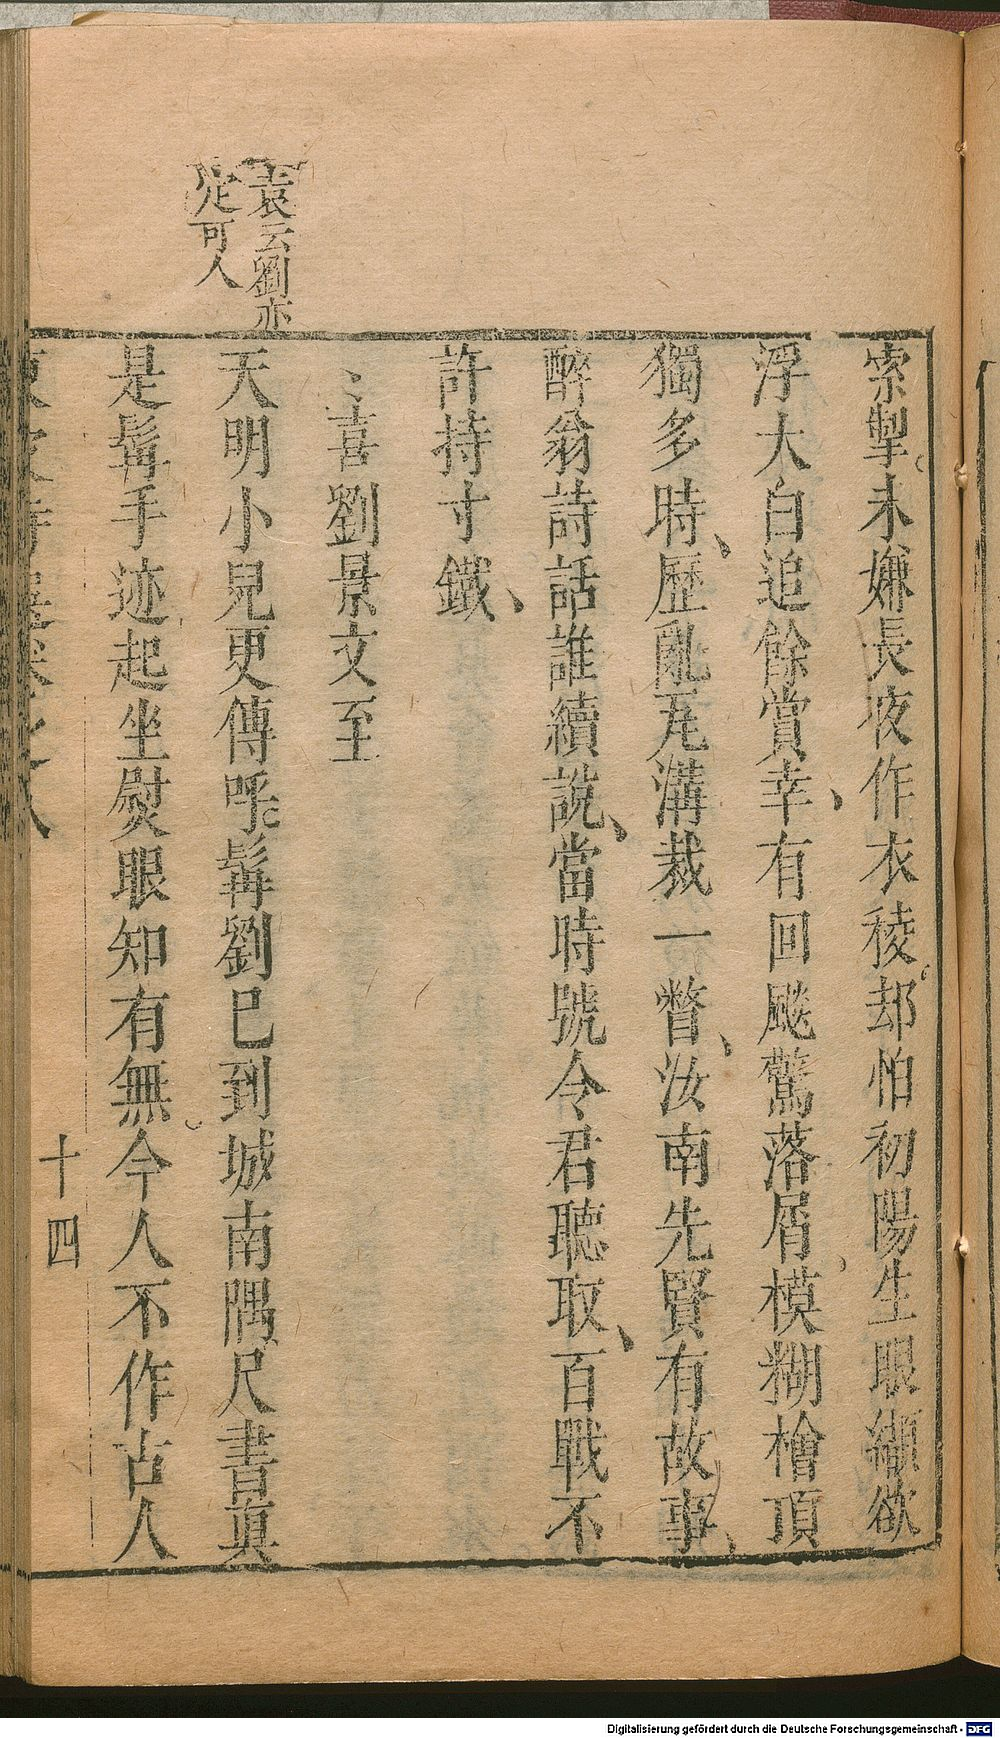 索掣未嫌長夜作衣稜却怕初陽生眼纈欲
浮大白追餘賞幸有回飈驚落屑模糊檜頂
獨多時歷亂瓦溝裁一瞥汝南先賢有故事
醉翁詩話誰續說當時號令君聽取百戰不
許持寸鐵
喜劉景文至
袁云劉亦
定可人
天明小兒更傳呼髯劉已到城南隅尺書真
是髯手迹起坐熨眼知有無今人不作古人
東坡詩選卷之八
十四
Digitalisierung gefördert durch die Deutsche Forschungsgemeinschaft - DFG